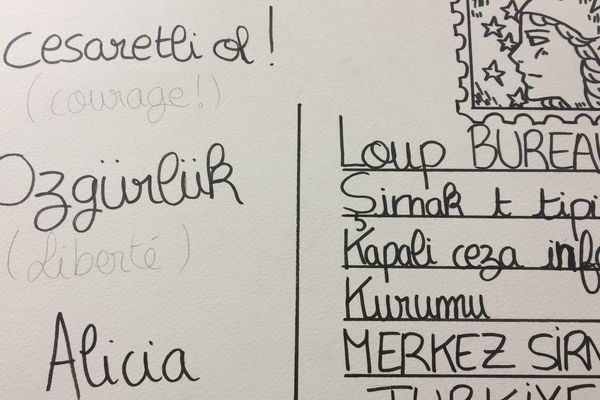 cesaretli ol!
(courage!)
Özgürlük
(Liberté)
Alicia
Loup BUREAU
Şimak t tipi
Kapali ceza infa
Kurumu
MERKEZ SİRN
TURKİYE